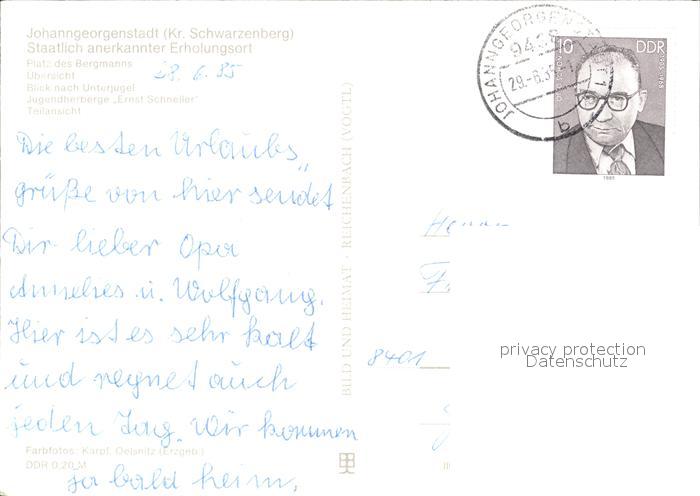 Johanngeorgenstadt (Kr. Schwarzenberg)
Staatlich anerkannter Erholungsort
Platz des Bergmanns
Übersicht
Blick nach Unterjugel
Jugendherberge „Ernst Schneller"
Teilansicht
28.6.85
Die besten Urlaubs„
grüße von hier sendet
Dir lieber Opa
Annelies u. Wolfgang.
Hier ist es sehr kalt
und regnet auch
jeden Tag. Wir kommen
ja bald heim,
Farbfotos: Karpf, Oelsnitz (Erzgeb.)
DDR 0,20 M
BILD UND HEIMAT · REICHENBACH (VOGTL)
JOHANNGEORGENSTADT 1
29.-6.85
b
10
DDR
1985
Herrn
8401
privacy protection
Datenschutz